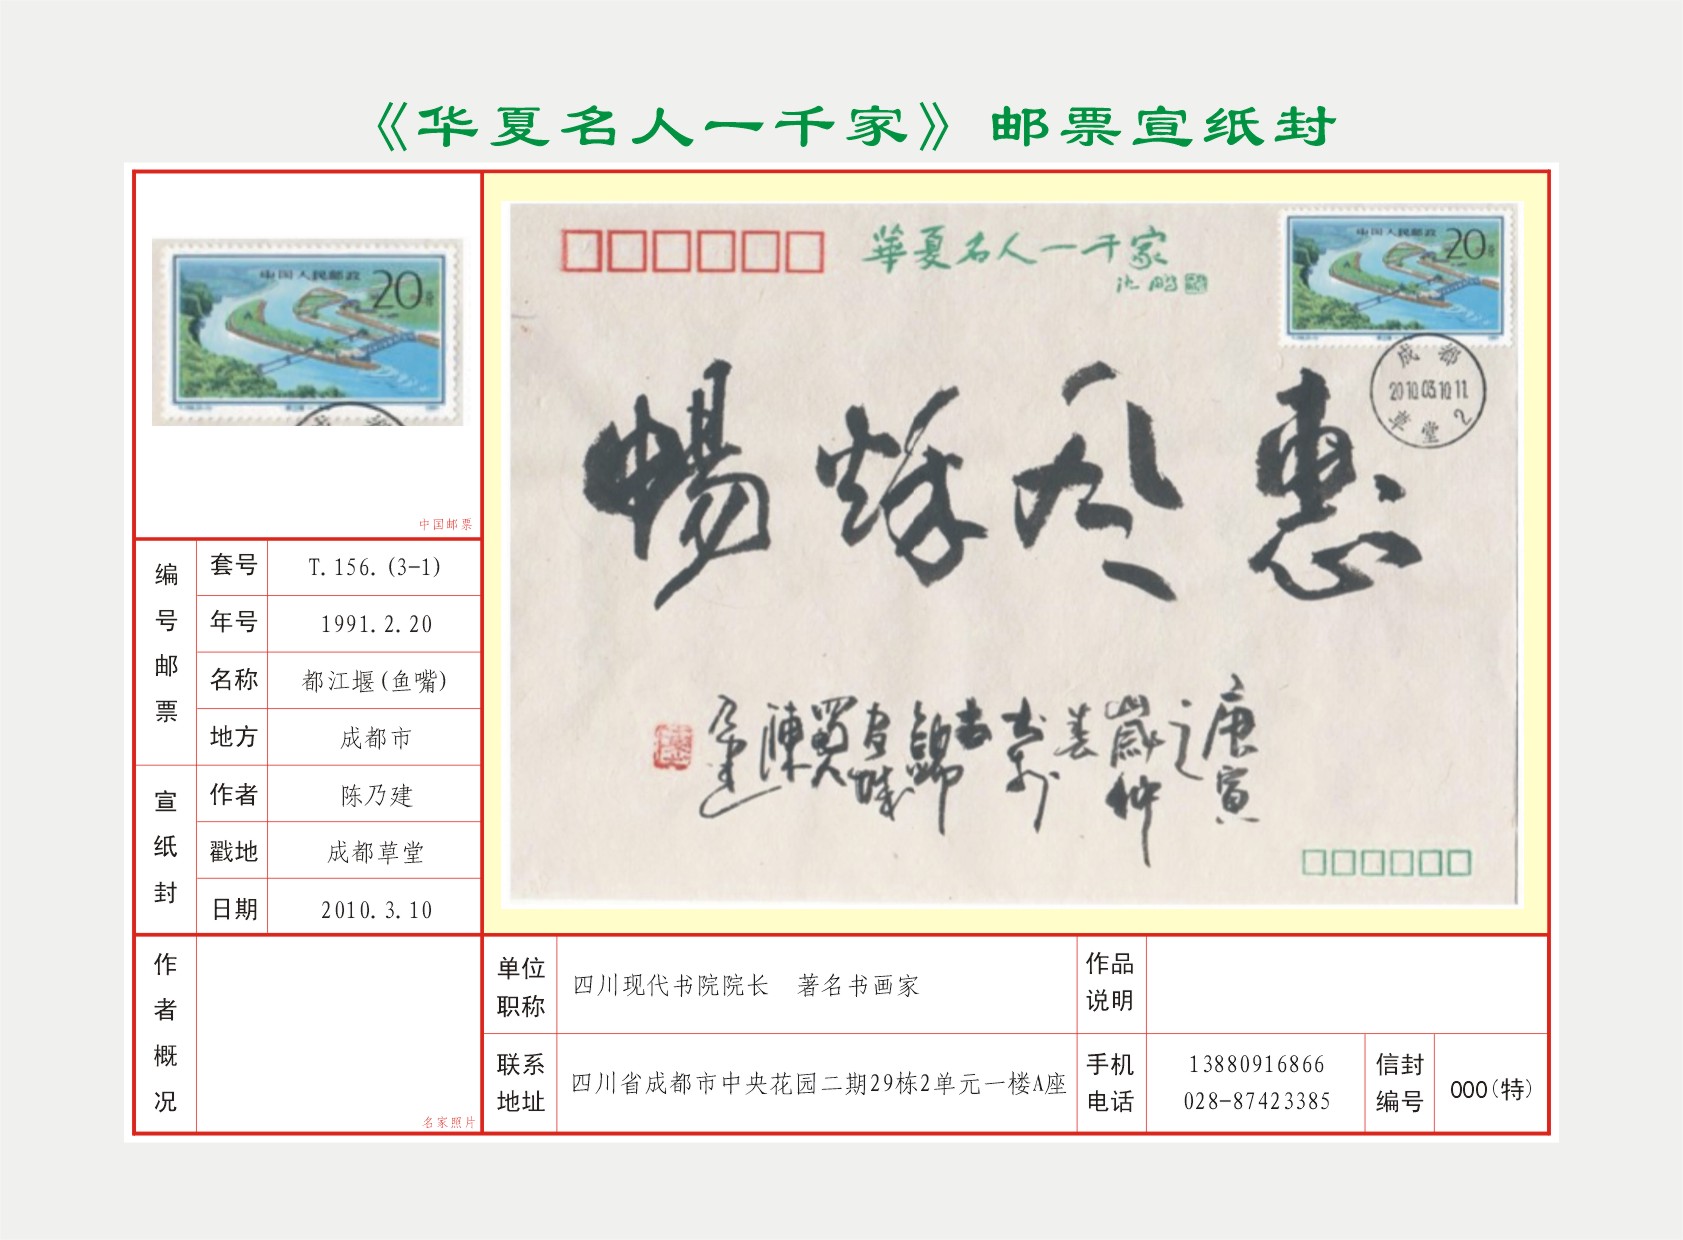 《华夏名人一千家》邮票宣纸封
中国人民邮政
20分
中国邮票
编号邮票
套号 T.156.(3-1)
年号 1991.2.20
名称 都江堰(鱼嘴)
地方 成都市
宣纸封
作者 陈乃建
戳地 成都草堂
日期 2010.3.10
作者概况
名家照片
華夏名人一千家
沈鹏
中国人民邮政
20分
成都
2010.03.10.11
草堂 2
惠风和暢
庚寅
之
歲仲
春
蜀人陳
乃建
单位职称 四川现代书院院长 著名书画家
作品说明
联系地址 四川省成都市中央花园二期29栋2单元一楼A座
手机电话 13880916866
028-87423385
信封编号 000(特)